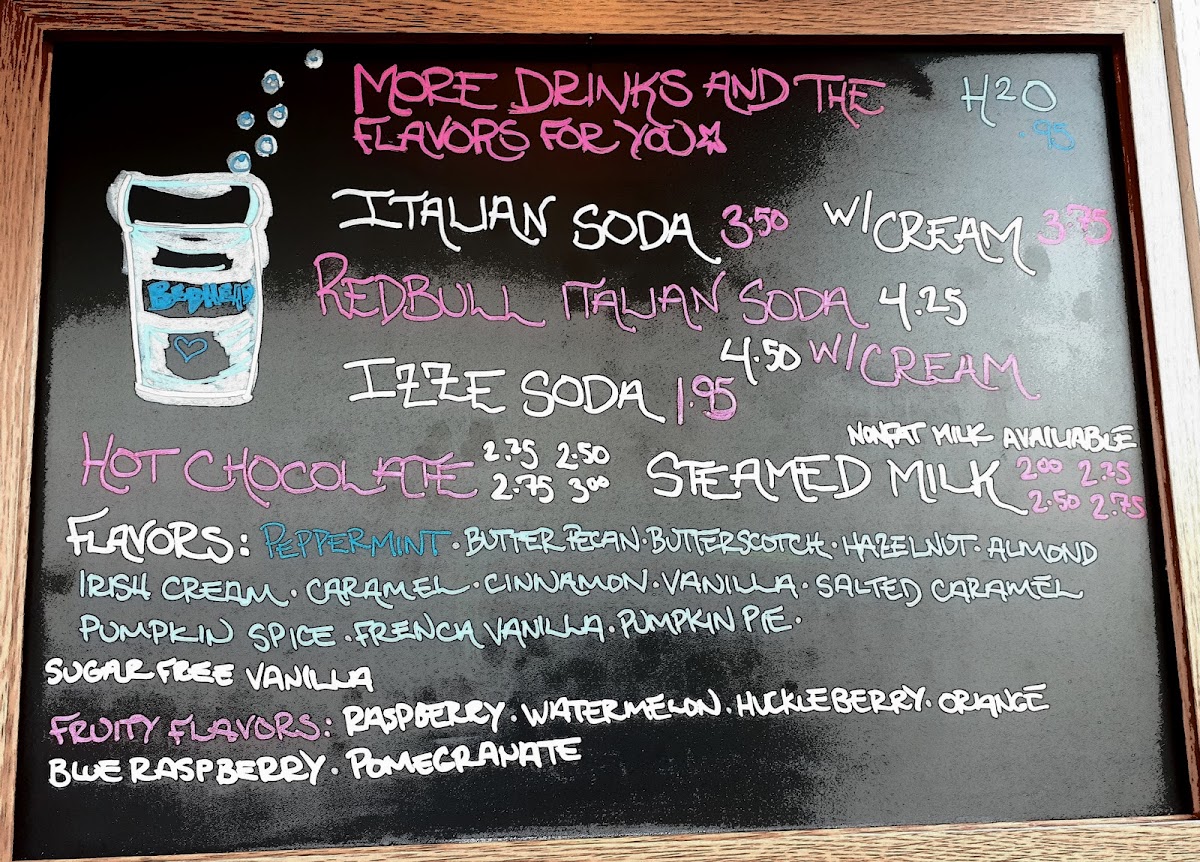 MORE DRINKS AND THE
FLAVORS FOR YOU
H2O
.95
BEDHEAD
ITALIAN SODA 3.50 W/CREAM 3.75
REDBULL ITALIAN SODA 4.25
4.50 W/CREAM
IZZE SODA 1.95
NONFAT MILK AVAILIABLE
HOT CHOCOLATE 2.25 2.50
2.75 3.00
STEAMED MILK 2.00 2.25
2.50 2.75
FLAVORS: PEPPERMINT · BUTTER PECAN · BUTTERSCOTCH · HAZELNUT · ALMOND
IRISH CREAM · CARAMEL · CINNAMON · VANILLA · SALTED CARAMEL
PUMPKIN SPICE · FRENCH VANILLA · PUMPKIN PIE ·
SUGAR FREE VANILLA
FRUITY FLAVORS: RASPBERRY · WATERMELON · HUCKLEBERRY · ORANGE
BLUE RASPBERRY · POMEGRANATE